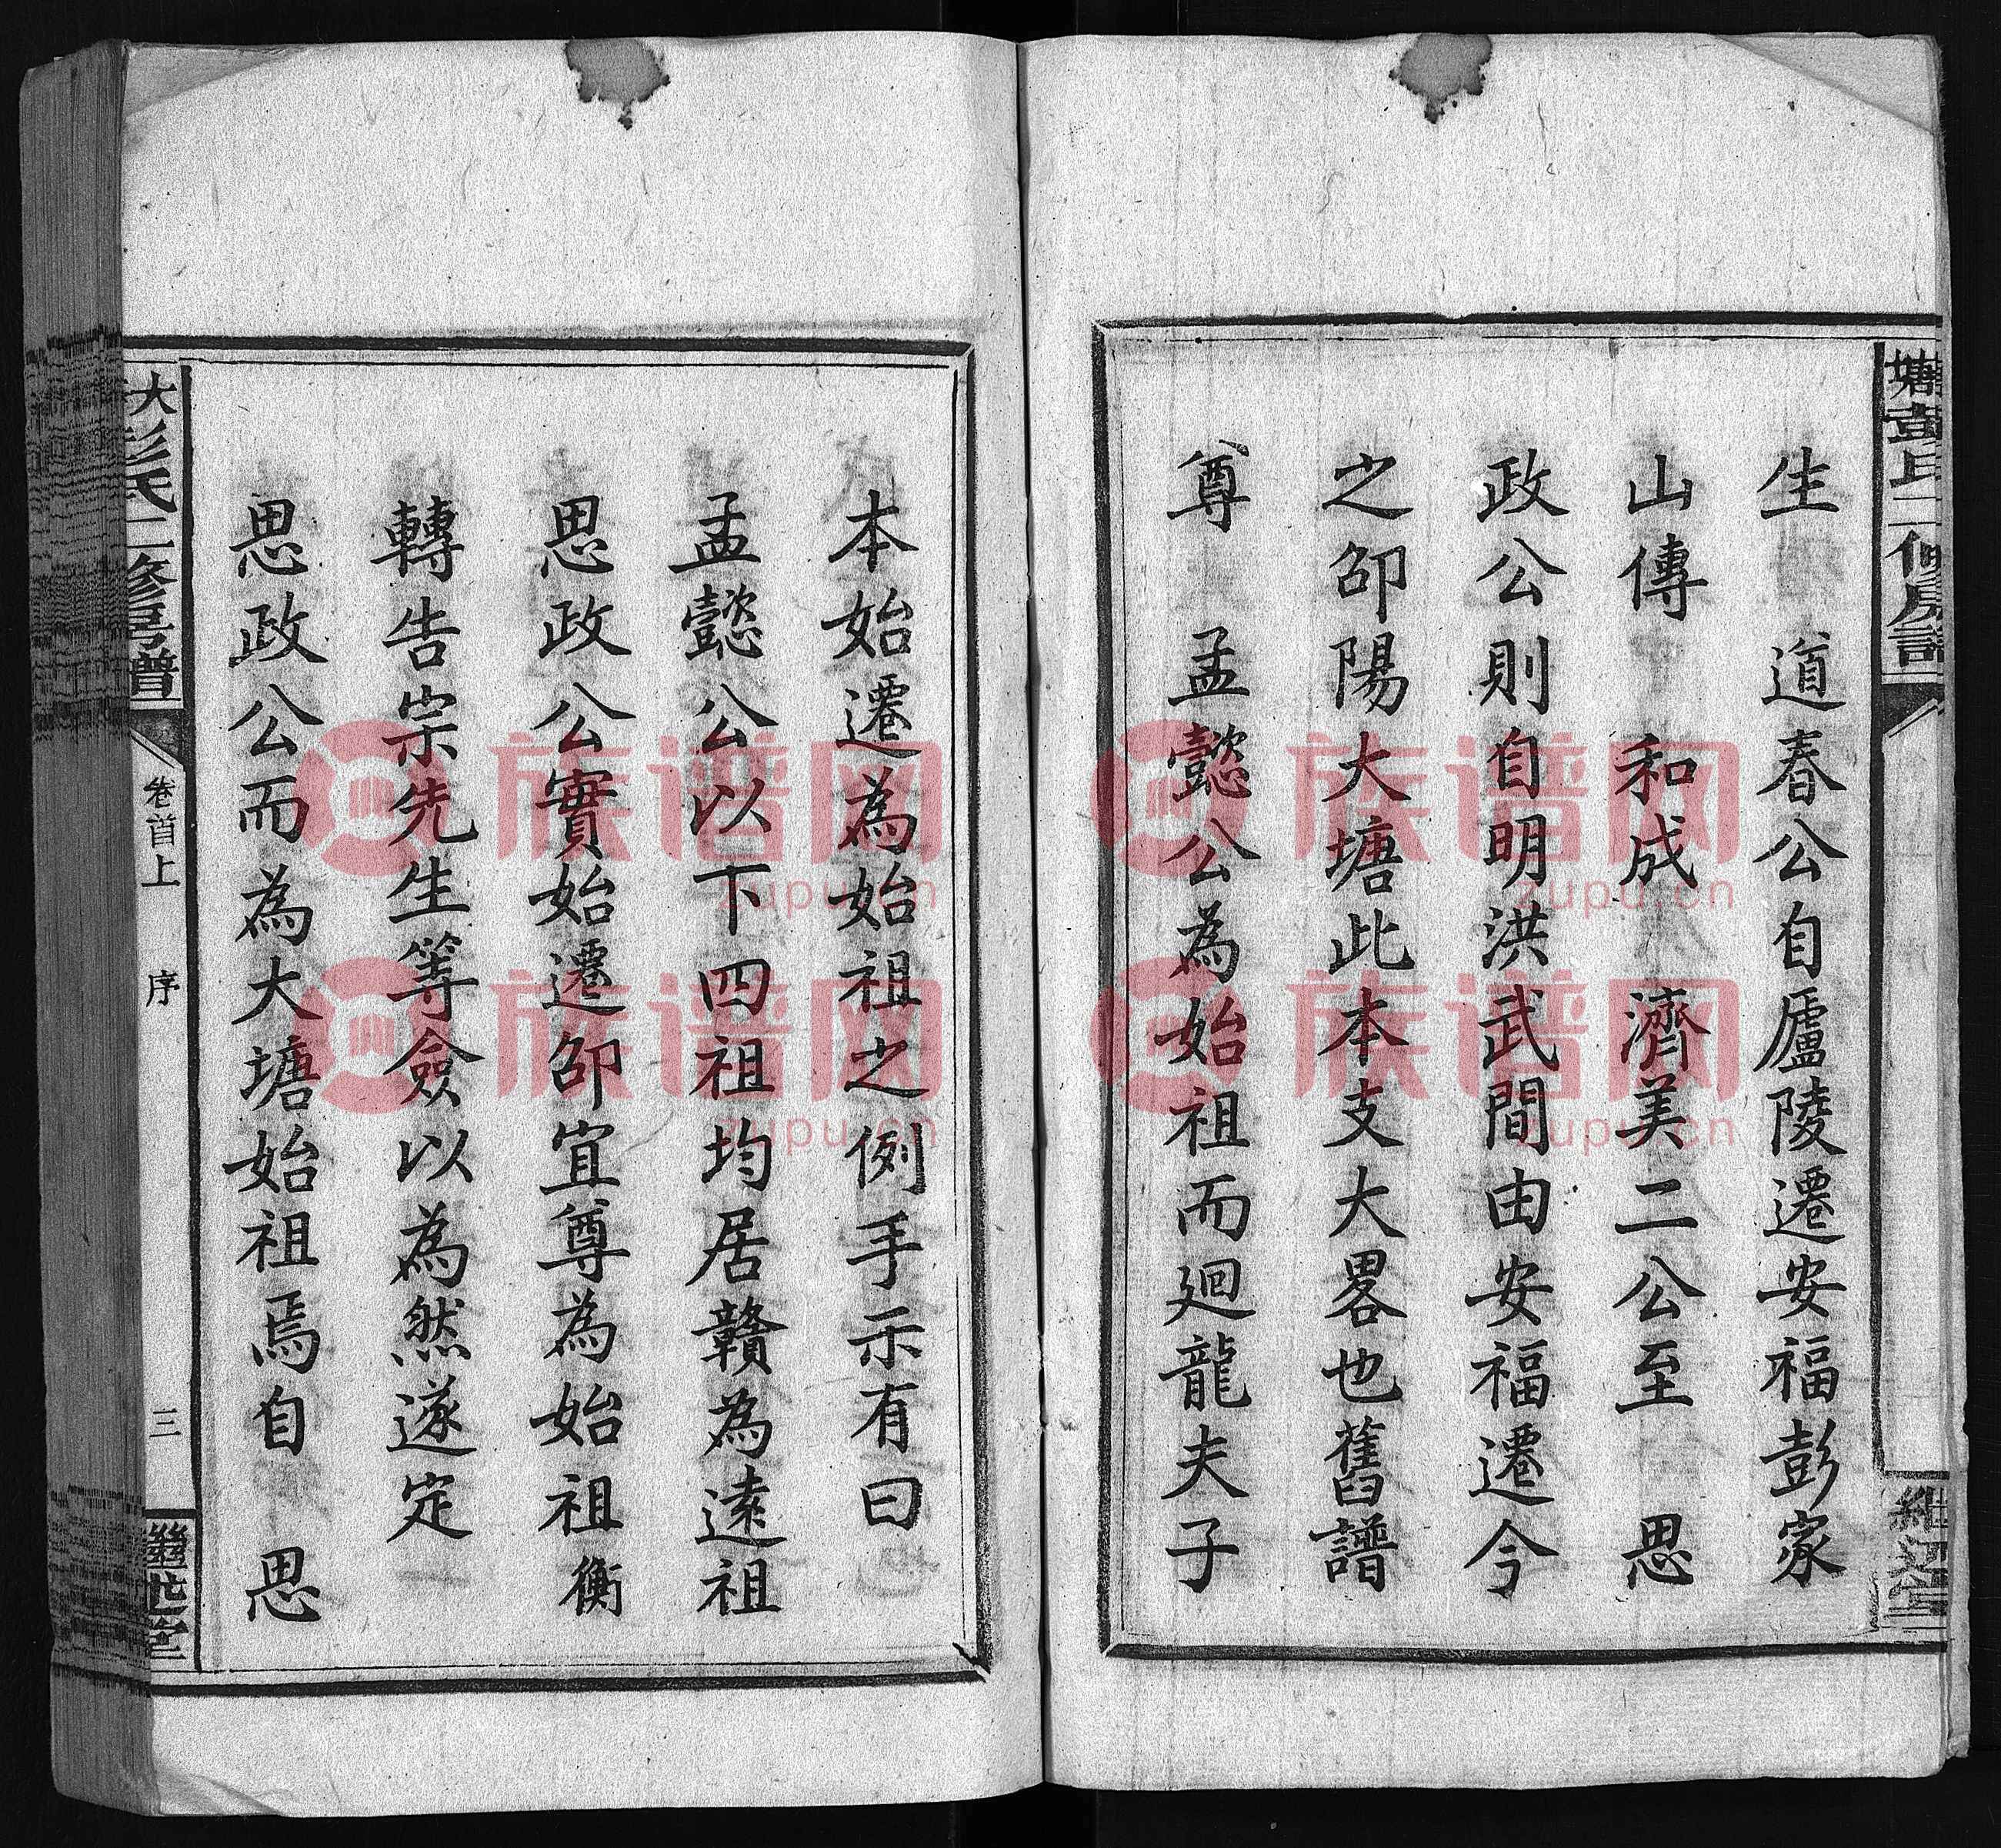 生　道春公自廬陵遷安福彭家
山傳　和成　濟美二公至　思
政公則自明洪武間由安福遷今
之邵陽大塘此本支大畧也舊譜
尊　孟懿公為始祖而廻龍夫子
本始遷為始祖之例手示有曰
孟懿公以下四祖均居贛為遠祖
思政公實始遷邵宜尊為始祖衡
轉告宗先生等僉以為然遂定
思政公而為大塘始祖焉自　思
大彭氏二修房譜
卷首上　序
三
族谱网
zupu.cn
族谱网
zupu.cn
族谱网
zupu.cn
族谱网
zupu.cn